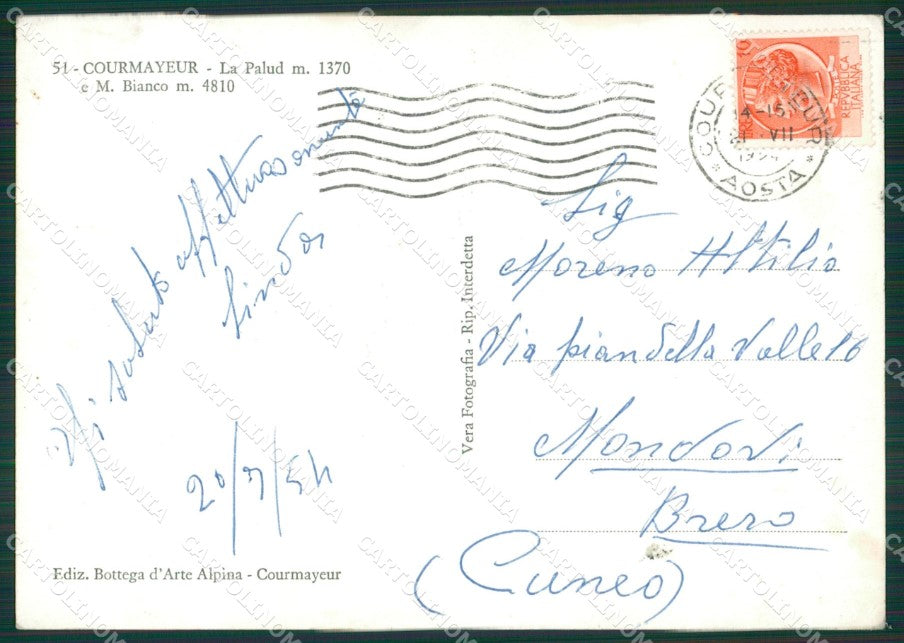 51 - COURMAYEUR - La Palud m. 1370
e M. Bianco m. 4810
Vi saluto affettuosamente
20/7/54
Ediz. Bottega d'Arte Alpina - Courmayeur
Vera Fotografia - Rip. Interdetta
10
REPVBBLICA
ITALIANA
COURMAYEUR
VII
1954
* AOSTA *
Sig
Moreno Attilio
Via piandella Valle 16
Mondovi
Brero
(Cuneo)
CARTOLINOMANIA